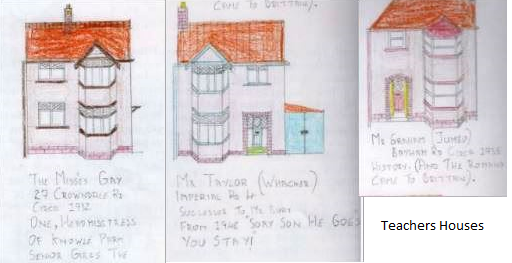 THE MISSES GAY
27 CROWNDALE RD
CIRCA 1932
ONE, HEADMISTRESS
OF KNOWLE PARK
SENIOR GIRLS THE
CAME TO BRITTAIN).
MR TAYLOR (WHACKER)
IMPERIAL RD
SUCCESSOR TO MR
FROM 1946 "SORY SON HE GOES
YOU STAY!
MR GRAHAM (JUMBO)
RD CIRCA 1935
HISTORY. (AND THE ROMANS
CAME TO BRITTAIN).
Teachers Houses